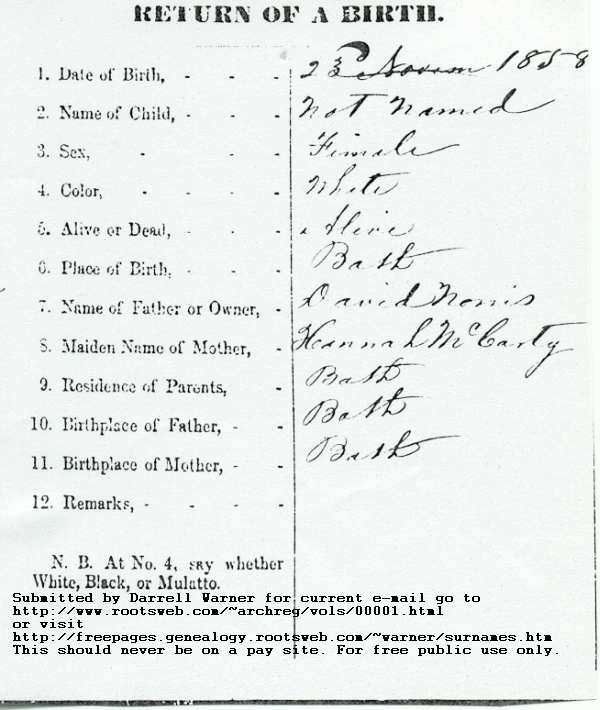 RETURN OF A BIRTH.
1. Date of Birth, - - - 23 Novem 1858
2. Name of Child, - - - Not Named
3. Sex, - - - Fimale
4. Color, - - - - White
5. Alive or Dead, - - - Alive
6. Place of Birth, - - - Bath
7. Name of Father or Owner, - David Norris
8. Maiden Name of Mother, - Hannah McCarty
9. Residence of Parents, - Bath
10. Birthplace of Father, - - Bath
11. Birthplace of Mother, - - Bath
12. Remarks, - - - -
N. B. At No. 4, say whether
White, Black, or Mulatto.
Submitted by Darrell Warner for current e-mail go to
http://www.rootsweb.com/~archreg/vols/00001.html
or visit
http://freepages.genealogy.rootsweb.com/~warner/surnames.htm
This should never be on a pay site. For free public use only.